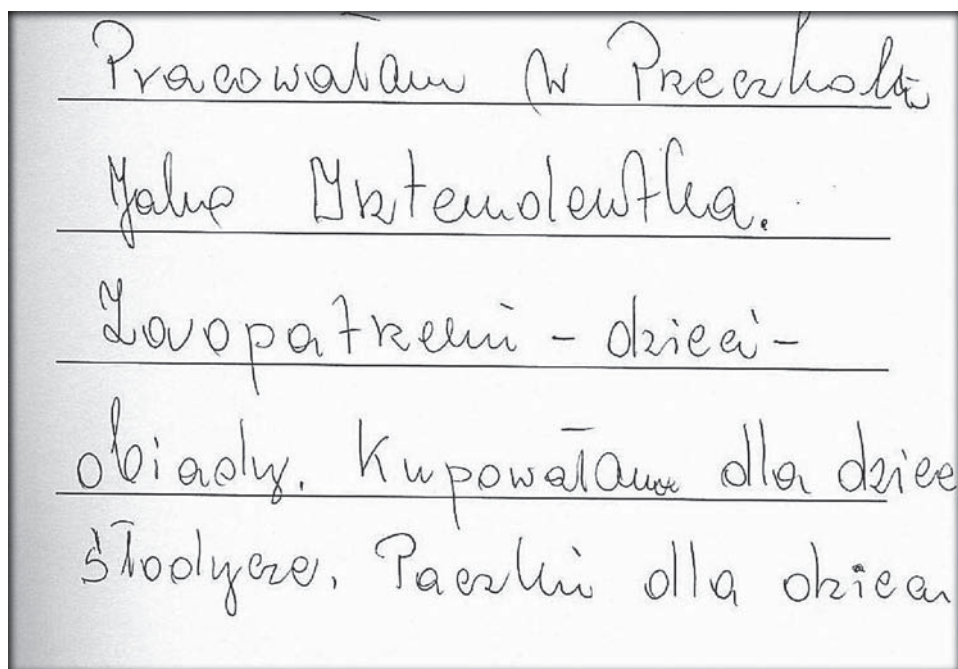 Pracowałam w Przeczkolu
Jako Iztendewtka.
Zaopatrzeni - dzieci -
obiady. Kupowałam dla dziec
słodycze. Paczki dla dzieci